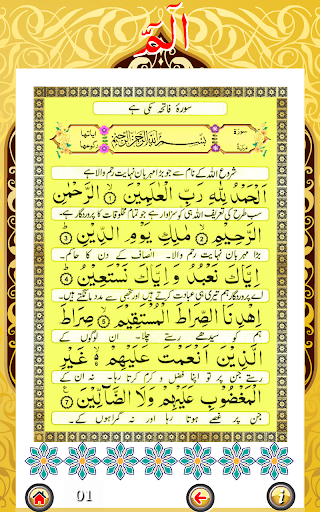 الٓمّٓ
سورۃ فاتحہ مکی ہے
سورۃ
بِسْمِ اللهِ الرَّحْمٰنِ الرَّحِيْمِ
شروع اللہ کے نام سے جو بڑا مہربان نہایت رحم والا ہے
اَلْحَمْدُ لِلّٰهِ رَبِّ الْعٰلَمِيْنَ ۝١ الرَّحْمٰنِ
سب طرح کی تعریف اللہ ہی کو سزاوار ہے جو تمام مخلوقات کا پروردگار ہے۔
الرَّحِيْمِ ۝٢ مٰلِكِ يَوْمِ الدِّيْنِ ۝٣
بڑا مہربان نہایت رحم والا۔ انصاف کے دن کا حاکم۔
اِيَّاكَ نَعْبُدُ وَ اِيَّاكَ نَسْتَعِيْنُ ۝٤
اے پروردگار ہم تیری ہی عبادت کرتے ہیں اور تجھی سے مدد مانگتے ہیں۔
اِهْدِنَا الصِّرَاطَ الْمُسْتَقِيْمَ ۝٥ صِرَاطَ
ہم کو سیدھے رستے چلا۔ ان لوگوں کے
الَّذِيْنَ اَنْعَمْتَ عَلَيْهِمْ ۝٦ غَيْرِ
رستے جن پر تو اپنا فضل و کرم کرتا رہا۔ نہ ان کے
الْمَغْضُوْبِ عَلَيْهِمْ وَلَا الضَّآلِّيْنَ ۝٧
جن پر غصے ہوتا رہا اور نہ گمراہوں کے۔
01
i